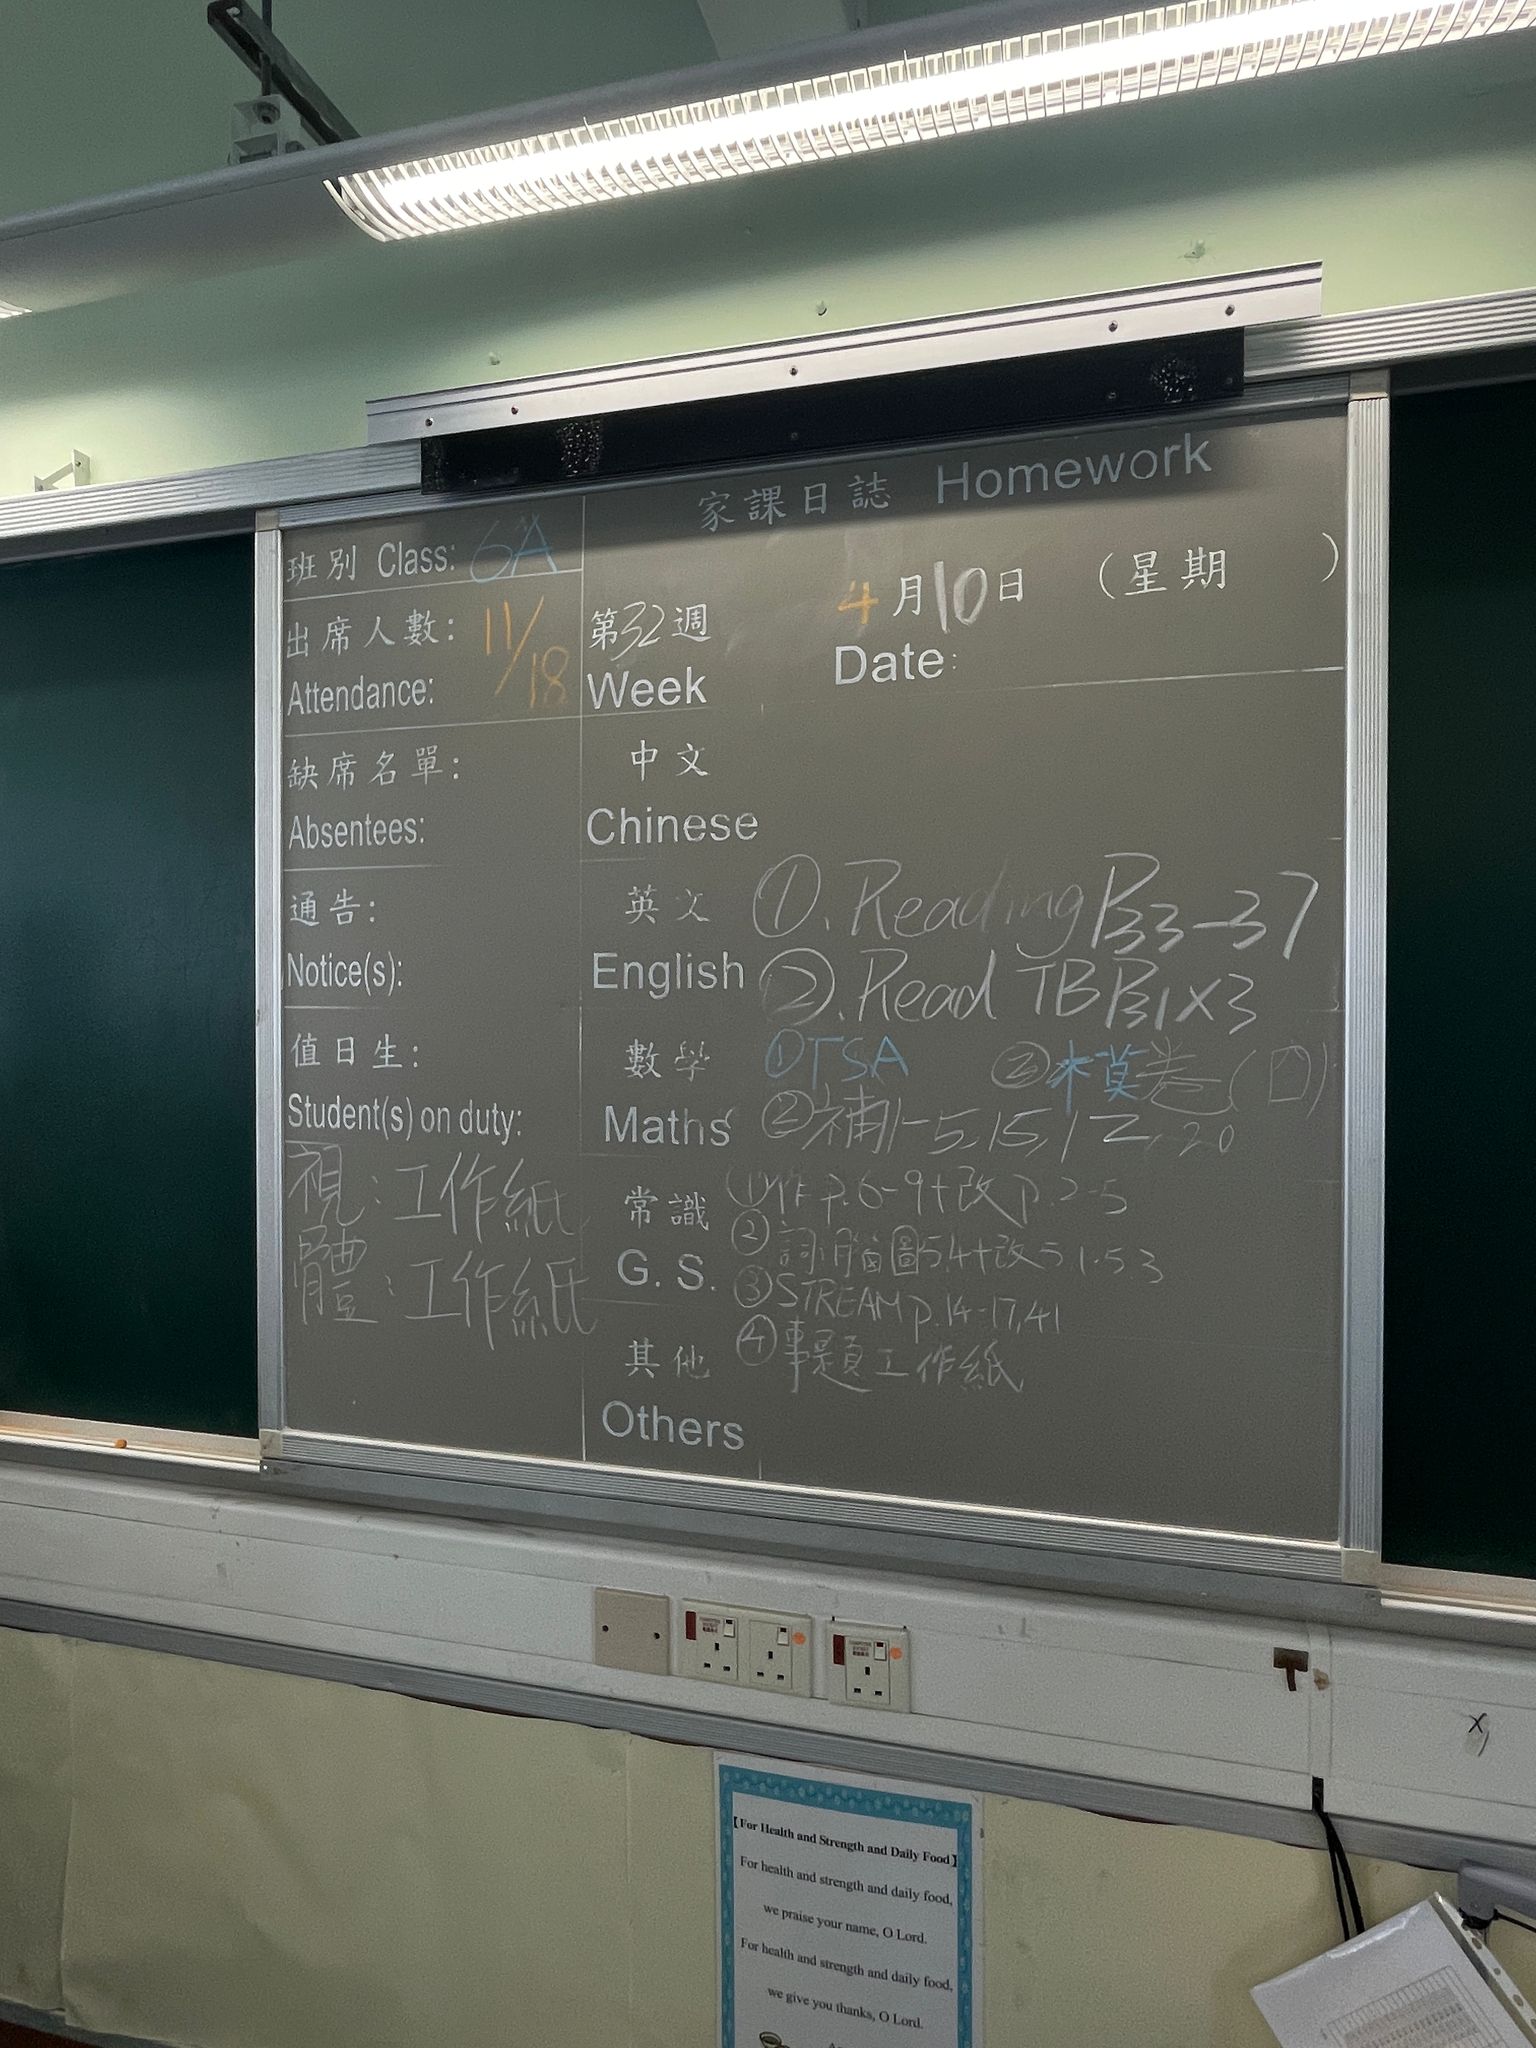 家課日誌 Homework
班別 Class: 6A
出席人數: 11/18
Attendance:
第32週
Week
4月10日 (星期 )
Date:
缺席名單:
Absentees:
通告:
Notice(s):
值日生:
Student(s) on duty:
視:工作紙
體:工作紙
中文
Chinese
英文
English
①. Reading P33-37
②. Read TB P31×3
數學
Maths
①TSA ②模卷(四)
②補1-5,15,17,20
常識
G. S.
①作p.6-9+改p.2-5
②詞,腦圖5.4+改51.53
③STREAM p.14-17,41
④專題工作紙
其他
Others
【For Health and Strength and Daily Food】
For health and strength and daily food,
we praise your name, O Lord.
For health and strength and daily food,
we give you thanks, O Lord.